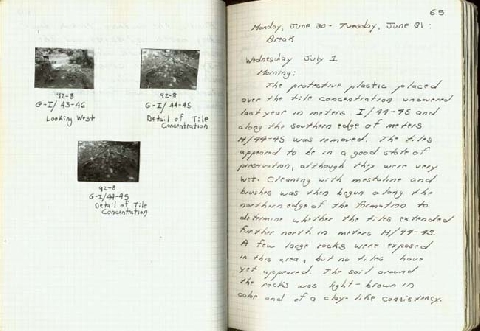 92-8
G-I/43-45
Looking West
92-8
G-I/44-45
Detail of Tile
Concentration
92-8
G-I/44-45
Detail of Tile
Concentration
63
Monday, June 30 - Tuesday, June 31:
Break
Wednesday July 1
Morning:
The protective plastic placed
over the tile concentration uncovered
last year in meters I/44-45 and
along the southern edge of meters
H/44-45 was removed. The tiles
appeared to be in a good state of
preservation, although they were very
wet. Cleaning with mestoline and
brushes was then begun along the
northern edge of the formation to
determine whether the tiles extended
further north in meters H/44-45.
A few large rocks were exposed
in this area, but no tiles have
yet appeared. The soil around
the rocks was light-brown in
color and of a clay-like consistency.